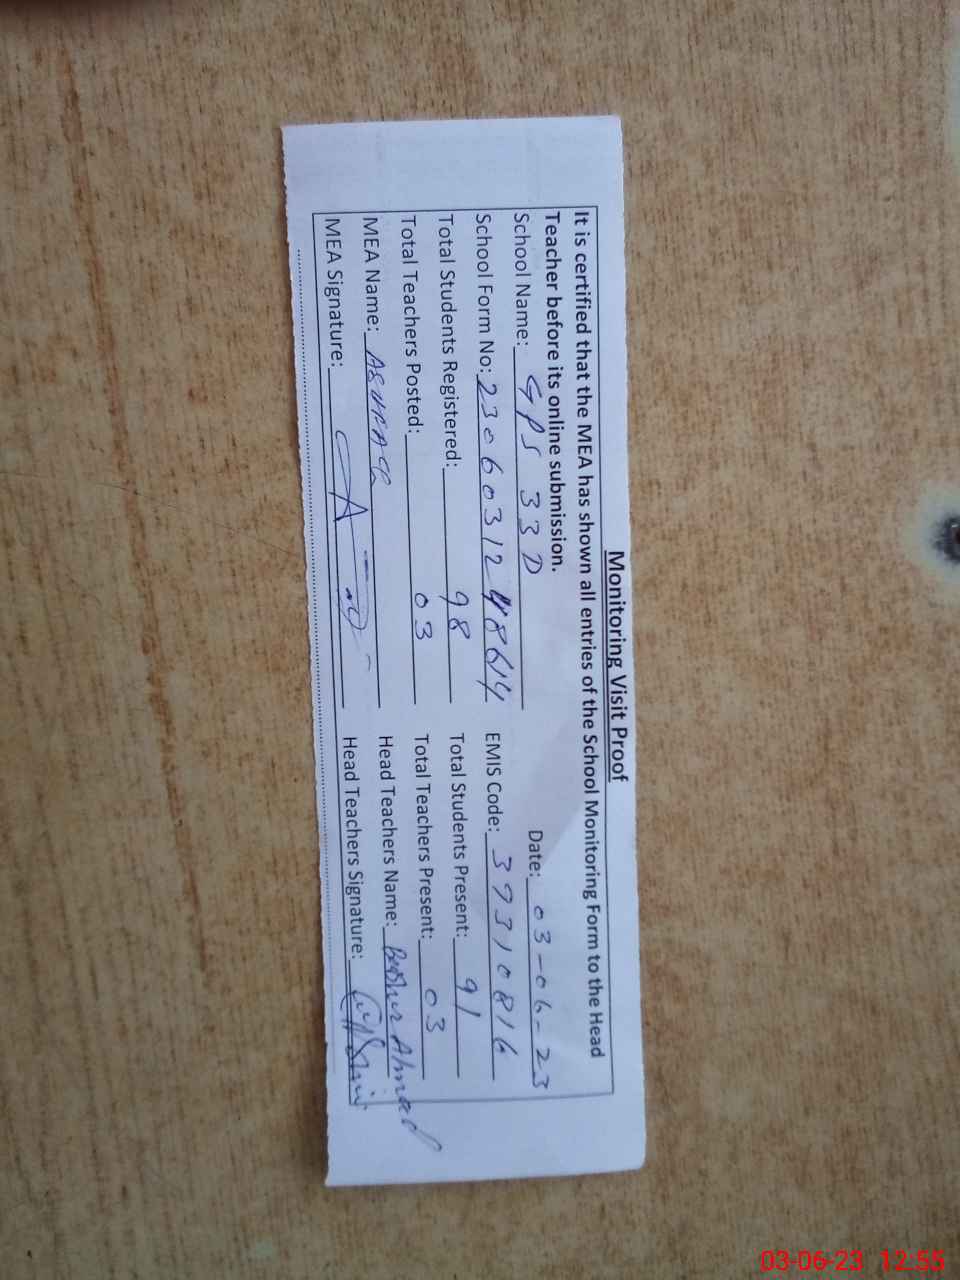 Monitoring Visit Proof
It is certified that the MEA has shown all entries of the School Monitoring Form to the Head
Teacher before its online submission.
Date: 03-06-23
School Name: GPS 33D
School Form No: 2306031248614 EMIS Code: 37310816
Total Students Registered: 98 Total Students Present: 91
Total Teachers Posted: 03 Total Teachers Present: 03
MEA Name: Head Teachers Name: Ahmad
MEA Signature: Head Teachers Signature:
03-06-23 12:55